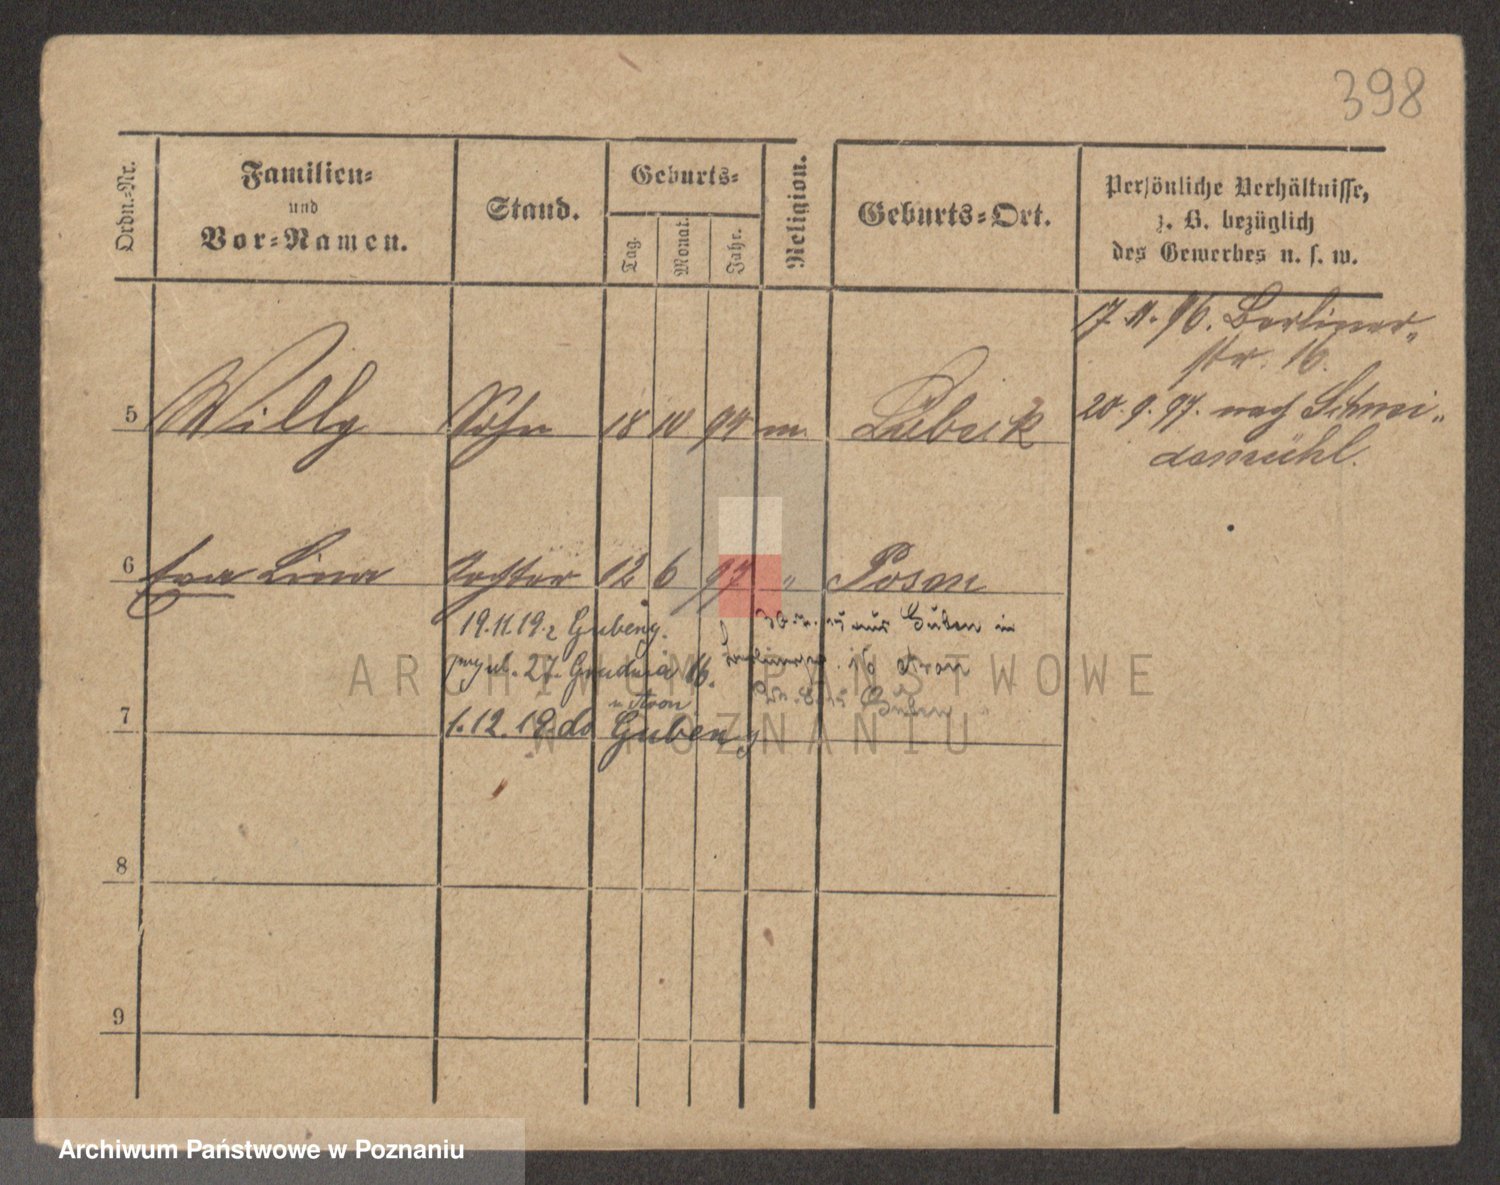 398
Ordn.-Nr.
Familien-
und
Vor-Namen.
Stand.
Geburts-
Tag.
Monat.
Jahr.
Religion.
Geburts-Ort.
Persönliche Verhältnisse,
z. B. bezüglich
des Gewerbes u. s. w.
17. 11. 96. Berliner-
str. 16.
5 Willy Sohn 18 10 94 m. Lübeck
20. 9. 97. nach Schnei-
demühl.
6 Eva Lina Tochter 12 6 97 " Posen
19.11.19. z Gubeny.
aus Guben in
27. Grudnia 16.
16
1.12.19. do Gubeny
7
8
9
ARCHIWUM PAŃSTWOWE
W POZNANIU
Archiwum Państwowe w Poznaniu